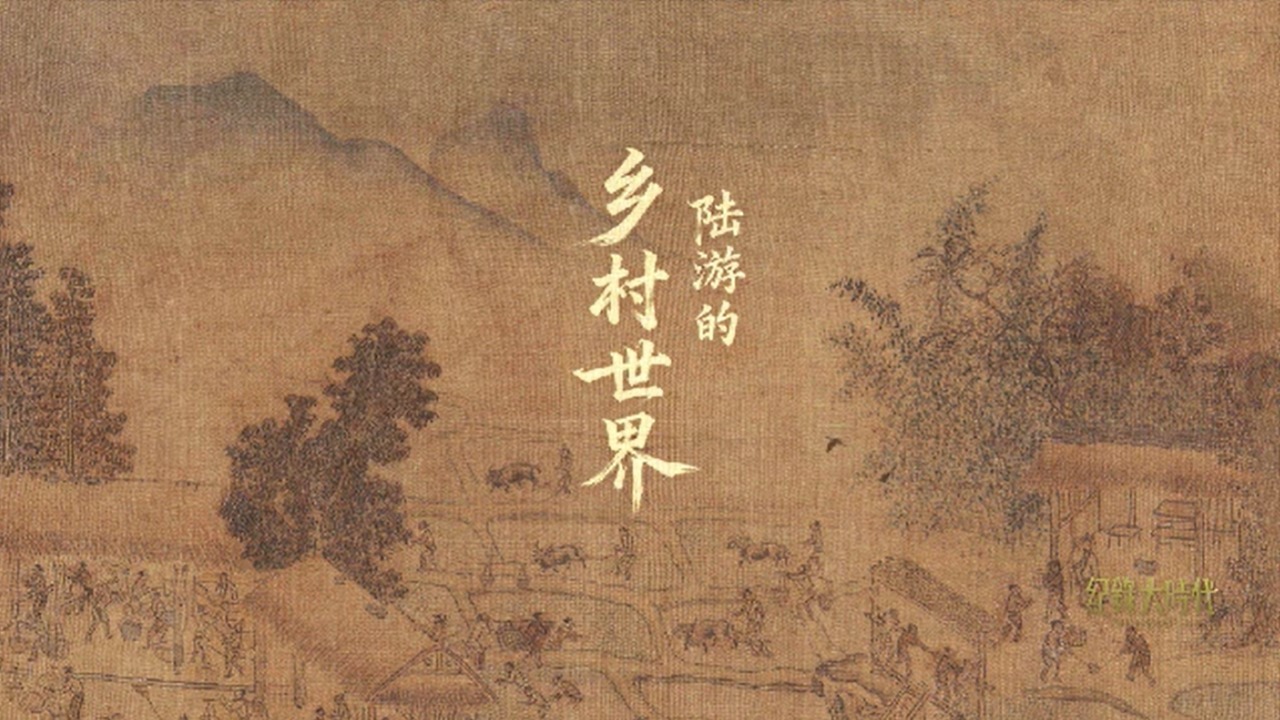 陆游的
乡村世界
纪录大时代